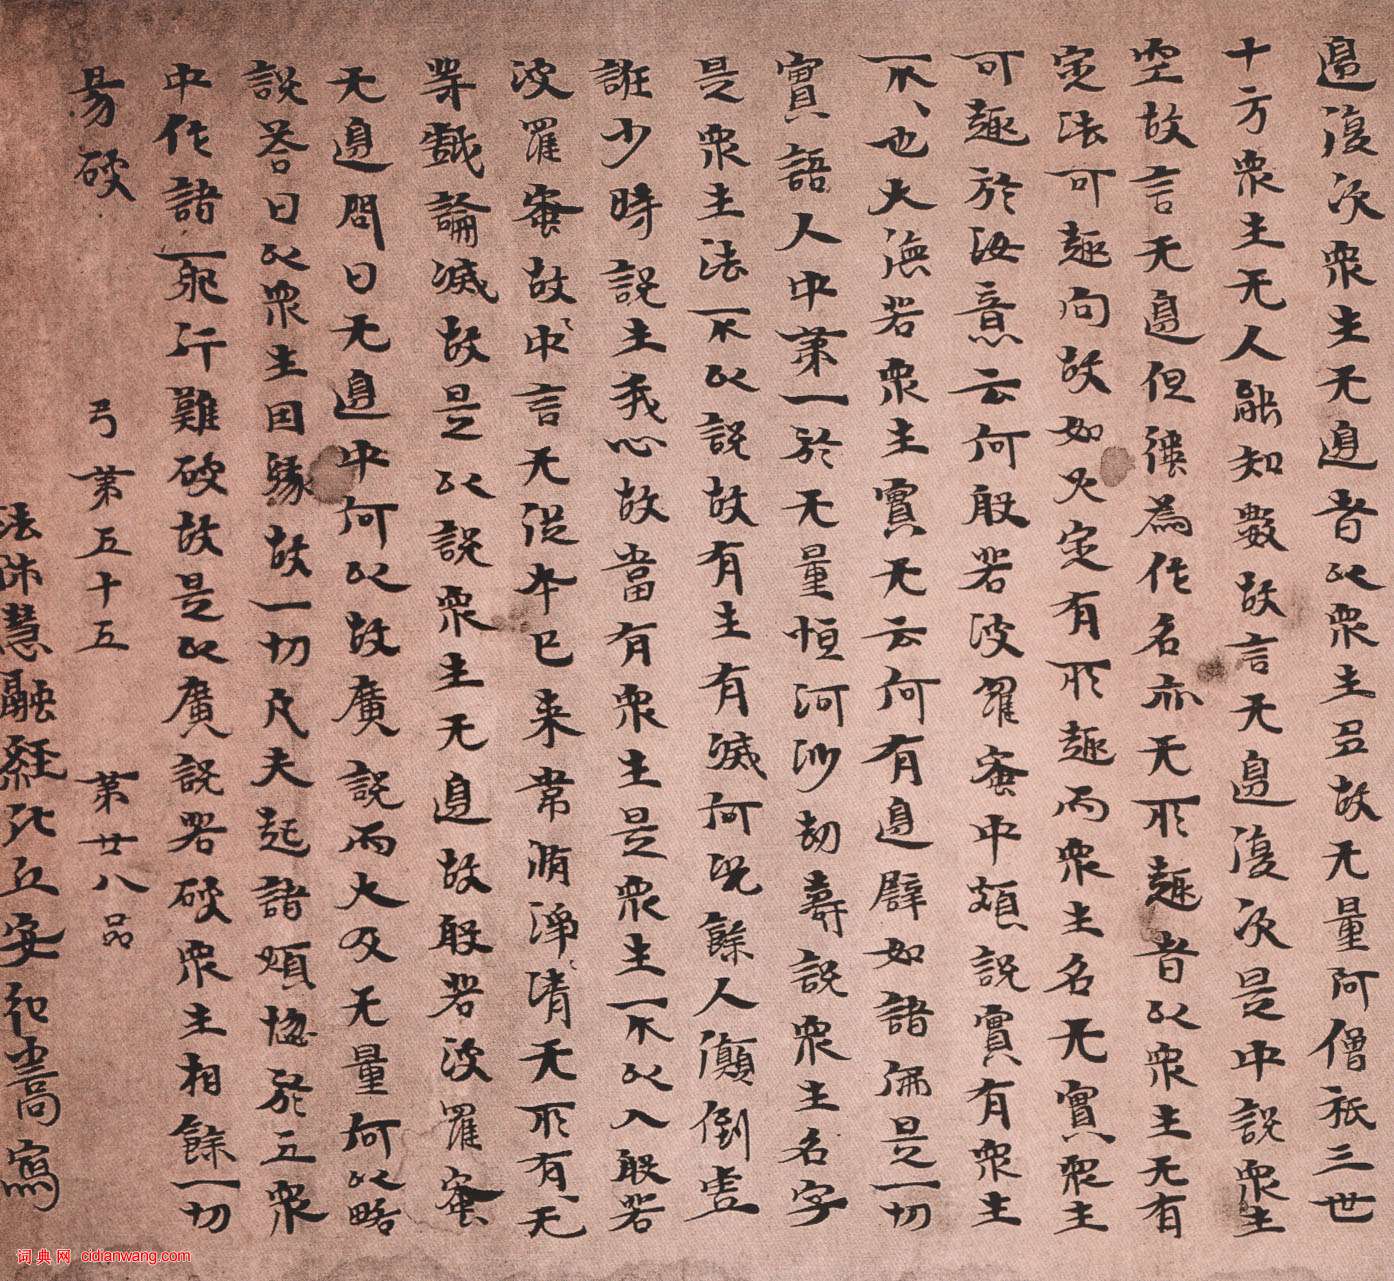 邊復次眾生无邊者以眾生多故无量阿僧祇三世
十方眾生无人能知數故言无邊復次是中說眾生
空故言无邊但彊為作名亦无所趣者以眾生无有
定法可趣向故如火定有所趣而眾生名无實眾生
可趣於汝意云何般若波羅蜜中頗說實有眾生
不、也大德若眾生實无云何有邊譬如諸佛是一切
實語人中第一於无量恒河沙劫壽說眾生名字
是眾生法不以說故有生有滅何況餘人顛倒虛
誑少時說生我心故當有眾生是眾生不以入般若
波羅蜜故、中言无從本已來常清淨、清无所有无
等戲論滅故是以說眾生无邊故般若波羅蜜
无邊問曰无邊中何以故廣說而大及无量何以略
說答曰以眾生因緣故一切凡夫起諸煩惱於五眾
中作諸一邪行難破故是以廣說若破眾生相餘一切
易破 弓第五十五 第廿八品
法師慧融經比丘安弘嵩寫
词典网 cidianwang.com